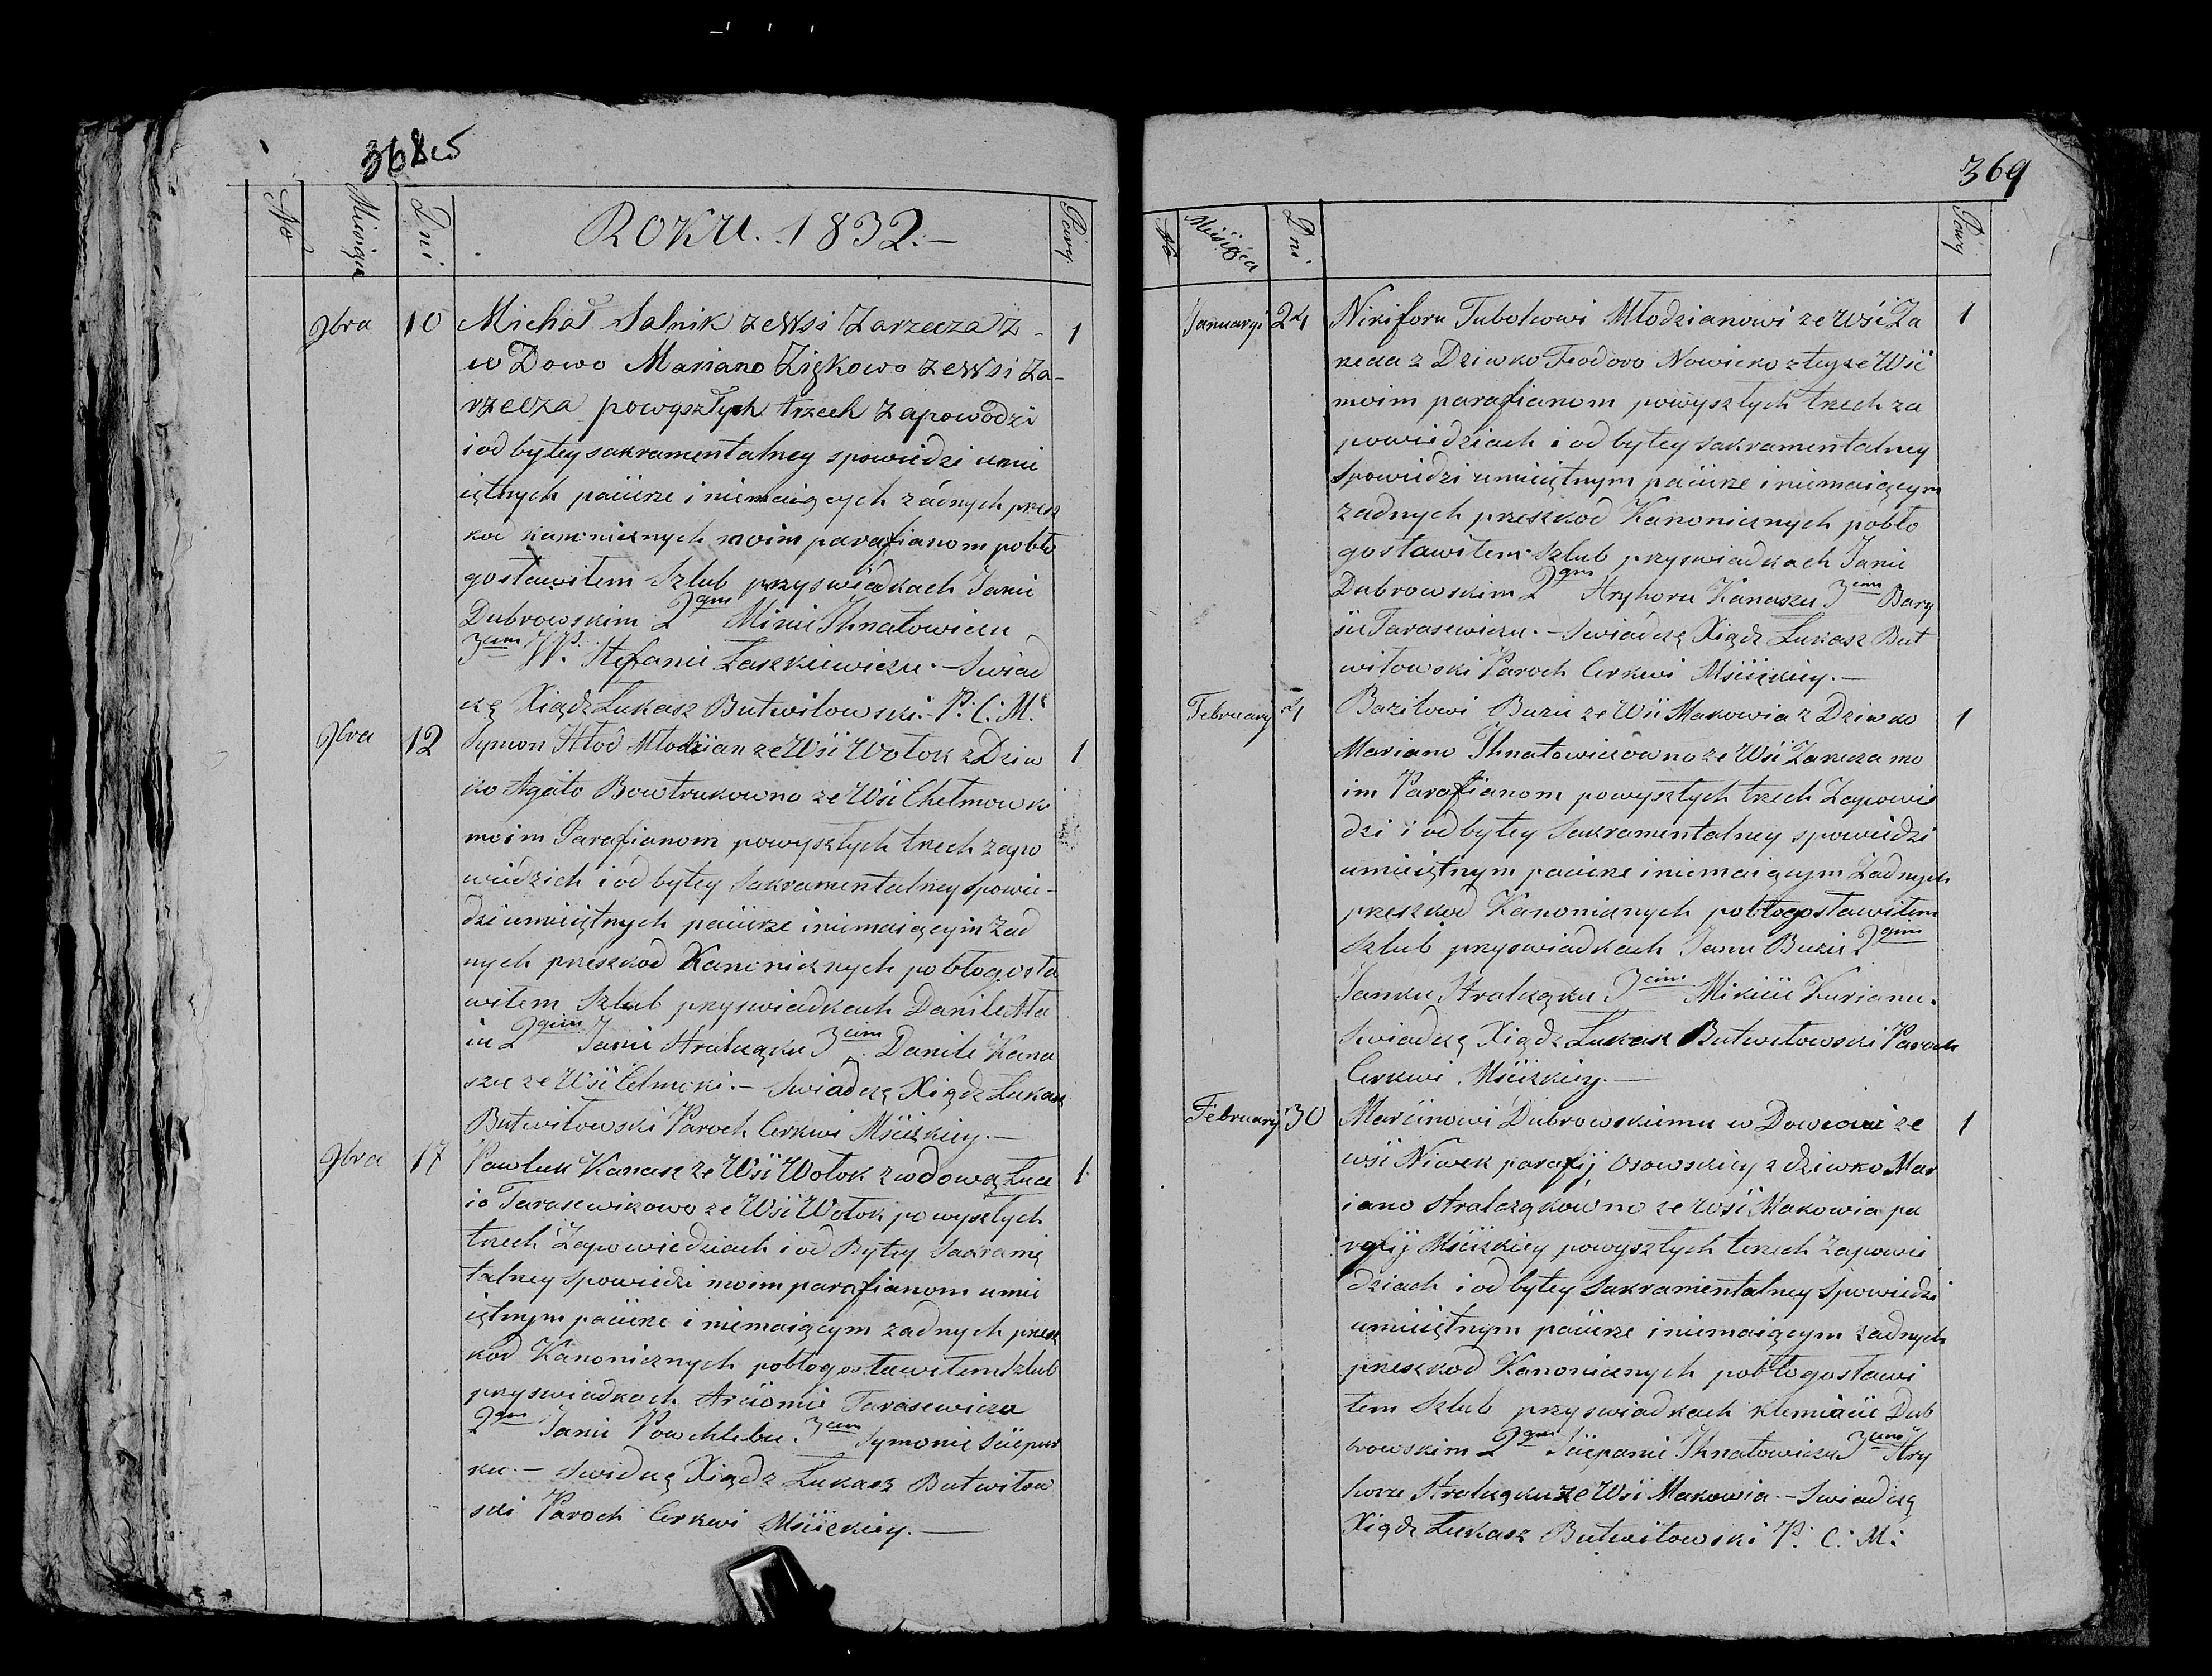 368
No Miesiąca Dni ROKU. 1832. Pary
9bra 10 Michał Salnik ze Wsi Zarzecza z 1
w Dowo Mariano Ziękowo ze Wsi Za-
rzecza powyszłych trzech Zapowodzi
i od byłey sakramentalney spowiedzi umie
iętnych pacierze i niemaiących żadnych przesz
kod kanonicznych moim parafianom pobło
gosławiłem Szlub przyswiadkach Janie
Dubrowskim 2gim Mixie Ihnatowiczu
3cim W. Stefanie Laszkiewiczu.— Swiad
czę Xiądz Łukasz Butwiłowski. P: C: M:
9bra 12 Symon Hłod Młodzian ze Wsi Wołok z Dziw 1
ko Agato Bowtrukowno ze Wsi Chełmowko
moim Parafianom powyszłych trzech zapo
wiedzich i od byłey Sakramentalney spowie-
dzi umieiętnych pacierze i niemaiącym żad
nych przeszkod Kanonicznych pobłogosła
wiłem Szlub przyswiadkach Danile Ała
iu 2gim Janie Stralcząku 3cim Danile Kana
szu ze Wsi Cełmoki.— Swiadczę Xiądz Łukasz
Butwiłowski Paroch Cerkwi Mscizkiey.—
9bra 17 Pawluk Kanasz ze Wsi Wołok z wdową Łuc 1
io Tarasewikowo ze Wsi Wołok powyszłych
trzech Zapowiedziach i od Byłey Sakramę
talney spowiedzi moim parafianom umie
iętnym pacierze i niemaiącym żadnych przesz
kod Kanonicznych pobłogosławiłem Szlub
przyswiadkach Arciomie Tarasewiczu
2gim Janie Powchlebie 3cim Symonie Sciepur
ku.— Swiadczę Xiądz Łukasz Butwiłow
ski Paroch Cerkwi Mscizkiey.—
369
No Miesiąca Dni. Pary
Januaryi 24 Nikiforu Tubolowi Młodzianowi ze Wsi Za 1
rzecza z Dziwko Feodoro Nowicko z teyże Wsi
moim parafianom powyszłych trzech za
powiedziach i od byłey sakramentalney
Spowiedzi umieiętnym pacierze i niemaiącym
żadnych przeszkod Kanonicznych pobło
gosławiłem Szlub przyswiadkach Janie
Dubrowskim 2gim Hryhoru Kanaszu 3cim Bary
sie Tarasewiczu.— Swiadczę Xiądz Łukasz But
wiłowski Paroch Cerkwi Mscizkiey.—
February 4 Baziłowi Buzie ze Wsi Makowia z Dziwko 1
Mariano Ihnatowiczowno ze Wsi Zarzecza mo
im Parafianom powyszłych trzech Zapowie
dzi i od byłey Sakramentalney spowiedzi
umieiętnym pacierze i niemaiącym Żadnych
przeszkod Kanonicznych pobłogosławiłem
Szlub przyswiadkach Janu Buzie 2gim
Janku Stralcząku 3cim Mikicie Kurianu.
Swiadczę Xiądz Łukasz Butwiłowski Paroch
Cerkwi Mscizkiey.—
February 30 Marcinowi Dubrowskiemu w Dowcowi ze 1
wsi Niwek parafij Osowskiey z dziwko Mar
iano Stralcząkowno ze wsi Makowia pa
rafij Mscizkiey powyszłych trzech Zapowie
dziach i od byłey Sakramentalney Spowiedzi
umieiętnym pacierze i niemaiącym żadnych
przeszkod Kanonicznych pobłogosławi
łem Szlub przyswiadkach Klemiacie Dub
rowskim 2gim Sciepanie Ihnatowiczu 3cim Hry
horze Stralcząku ze Wsi Makowia.— Swiadczę
Xiądz Łukasz Butwiłowski P: C: M: